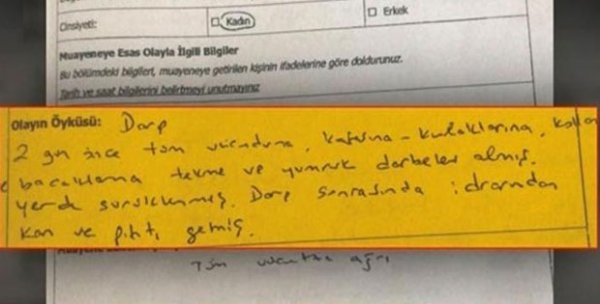 Cinsiyeti: ☐ Kadın ☐ Erkek
Muayeneye Esas Olayla İlgili Bilgiler
Bu bölümdeki bilgileri, muayeneye getirilen kişinin ifadelerine göre doldurunuz.
Tarih ve saat bilgilerini belirtmeyi unutmayınız
Olayın Öyküsü: Darp
2 gün önce tüm vücuduna, kafasına - kulaklarına, kolları
bacaklarına tekme ve yumruk darbeleri almış.
yerde sürüklenmiş. Darp sonrasında idrarından
kan ve pıhtı gelmiş.
Tüm vücutta ağrı